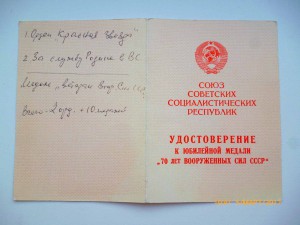 1. Орден Красная Звезда
2. За службу Родине в ВС
Медаль „Ветеран Воор. Сил СССР"
Всего - 2 орд. + 10 медалей
СОЮЗ
СОВЕТСКИХ
СОЦИАЛИСТИЧЕСКИХ
РЕСПУБЛИК
УДОСТОВЕРЕНИЕ
К ЮБИЛЕЙНОЙ МЕДАЛИ
„70 ЛЕТ ВООРУЖЕННЫХ СИЛ СССР"